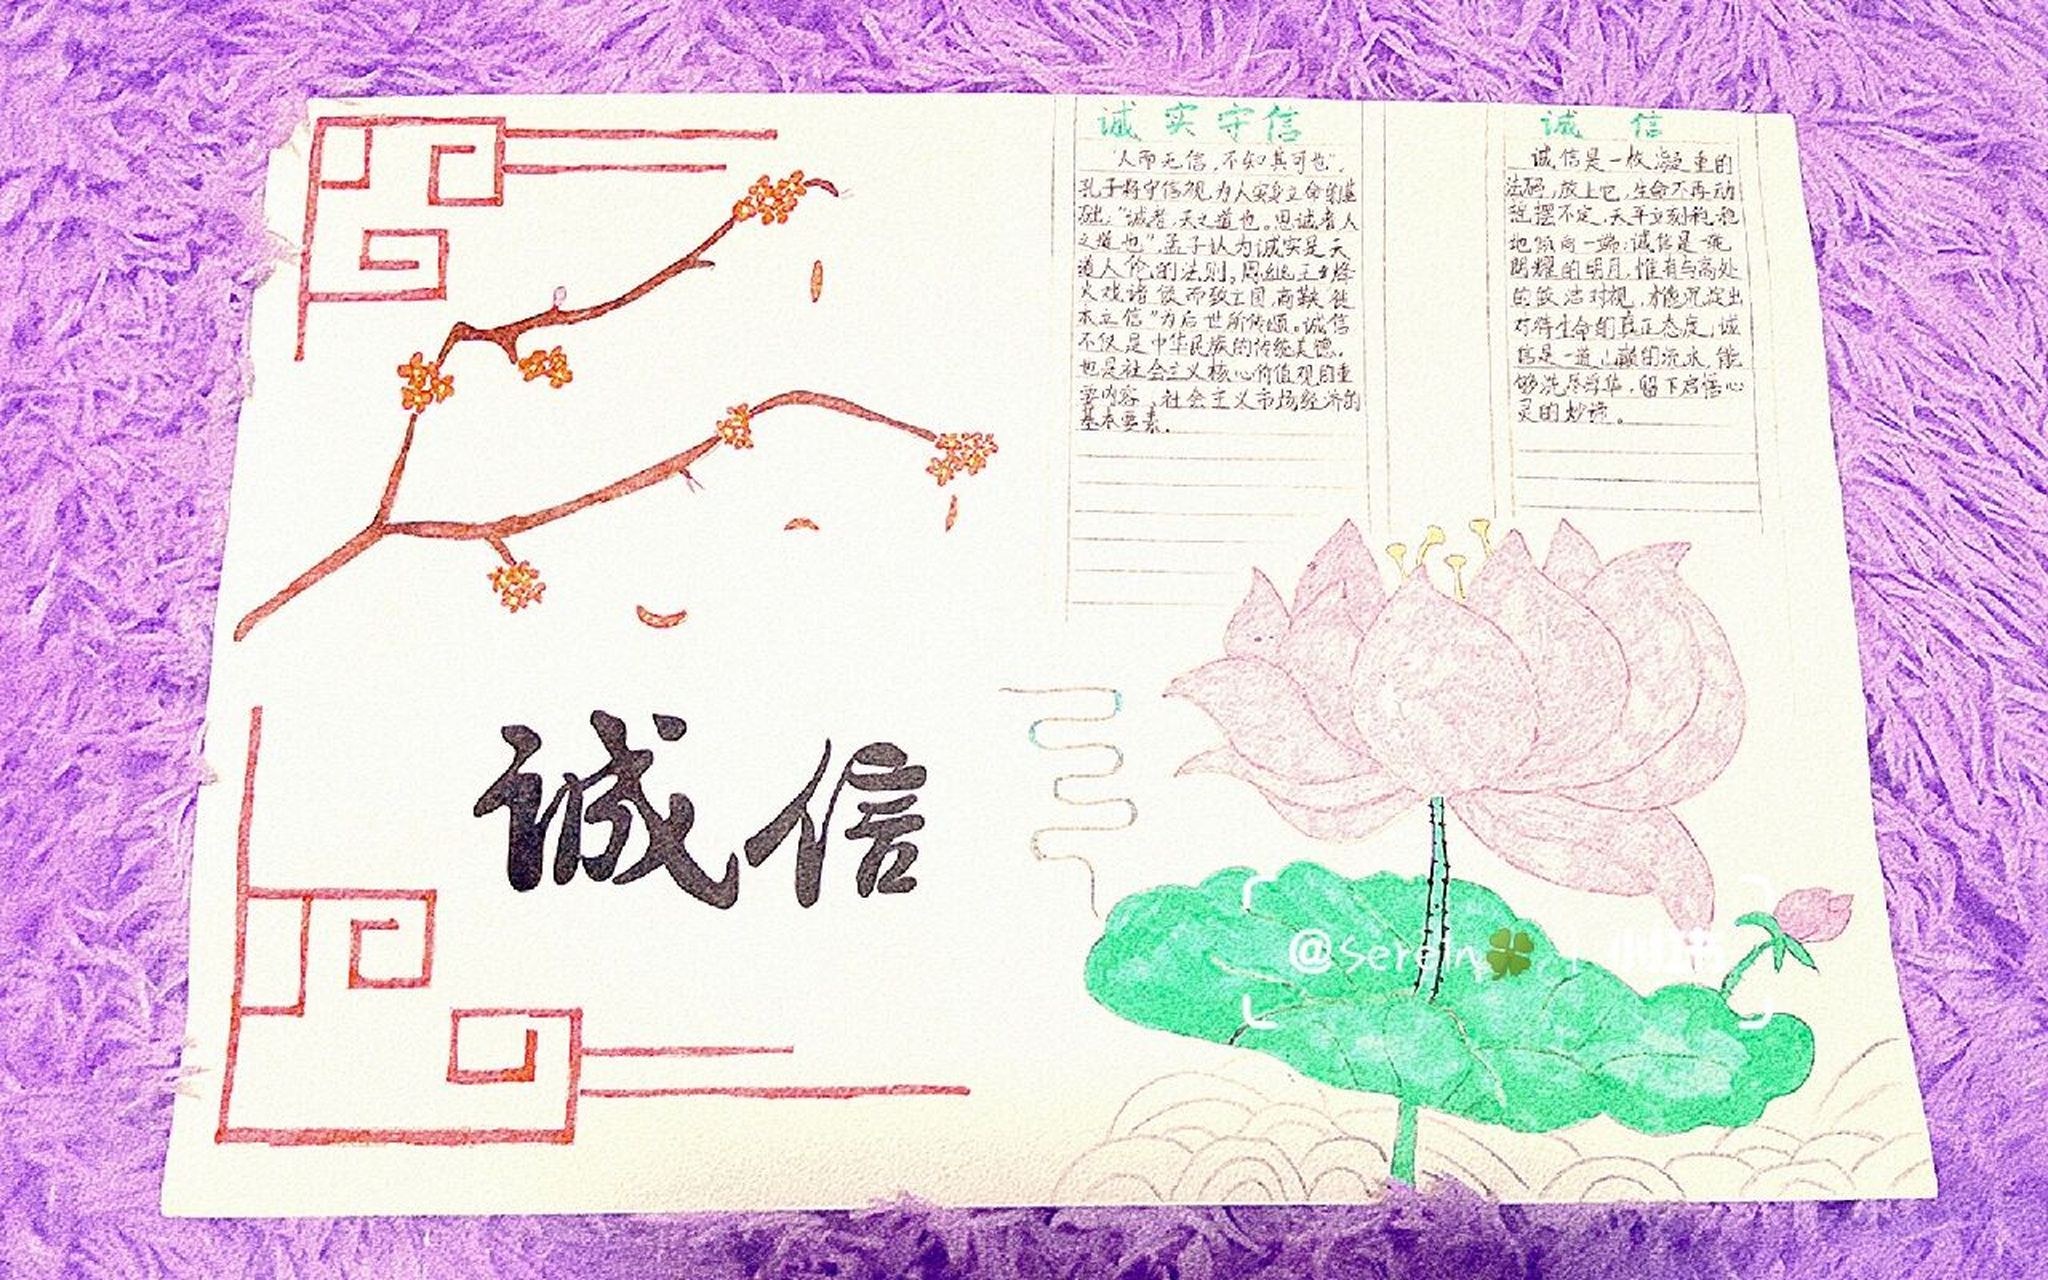 诚实守信
"人而无信,不知其可也",
孔子将守信视为人安身立命的基
础;"诚者,天之道也。思诚者人
之道也",孟子认为诚实是天
道人伦的法则。周幽王烽
火戏诸侯而致亡国,商鞅"徙
木立信"为后世所传颂。诚信
不仅是中华民族的传统美德,
也是社会主义核心价值观的重
要内容,社会主义市场经济的
基本要素.
诚信
诚信是一枚凝重的
法码,放上它,生命不再动
摇摆不定,天平立刻稳稳
地倾向一端;诚信是一轮
朗耀的明月,惟有与高处
的皎洁对视,才能沉淀出
对待生命的真正态度;诚
信是一道山巅的流水,能
够洗尽浮华,留下启悟心
灵的妙谛。
诚信
@Serein🍀